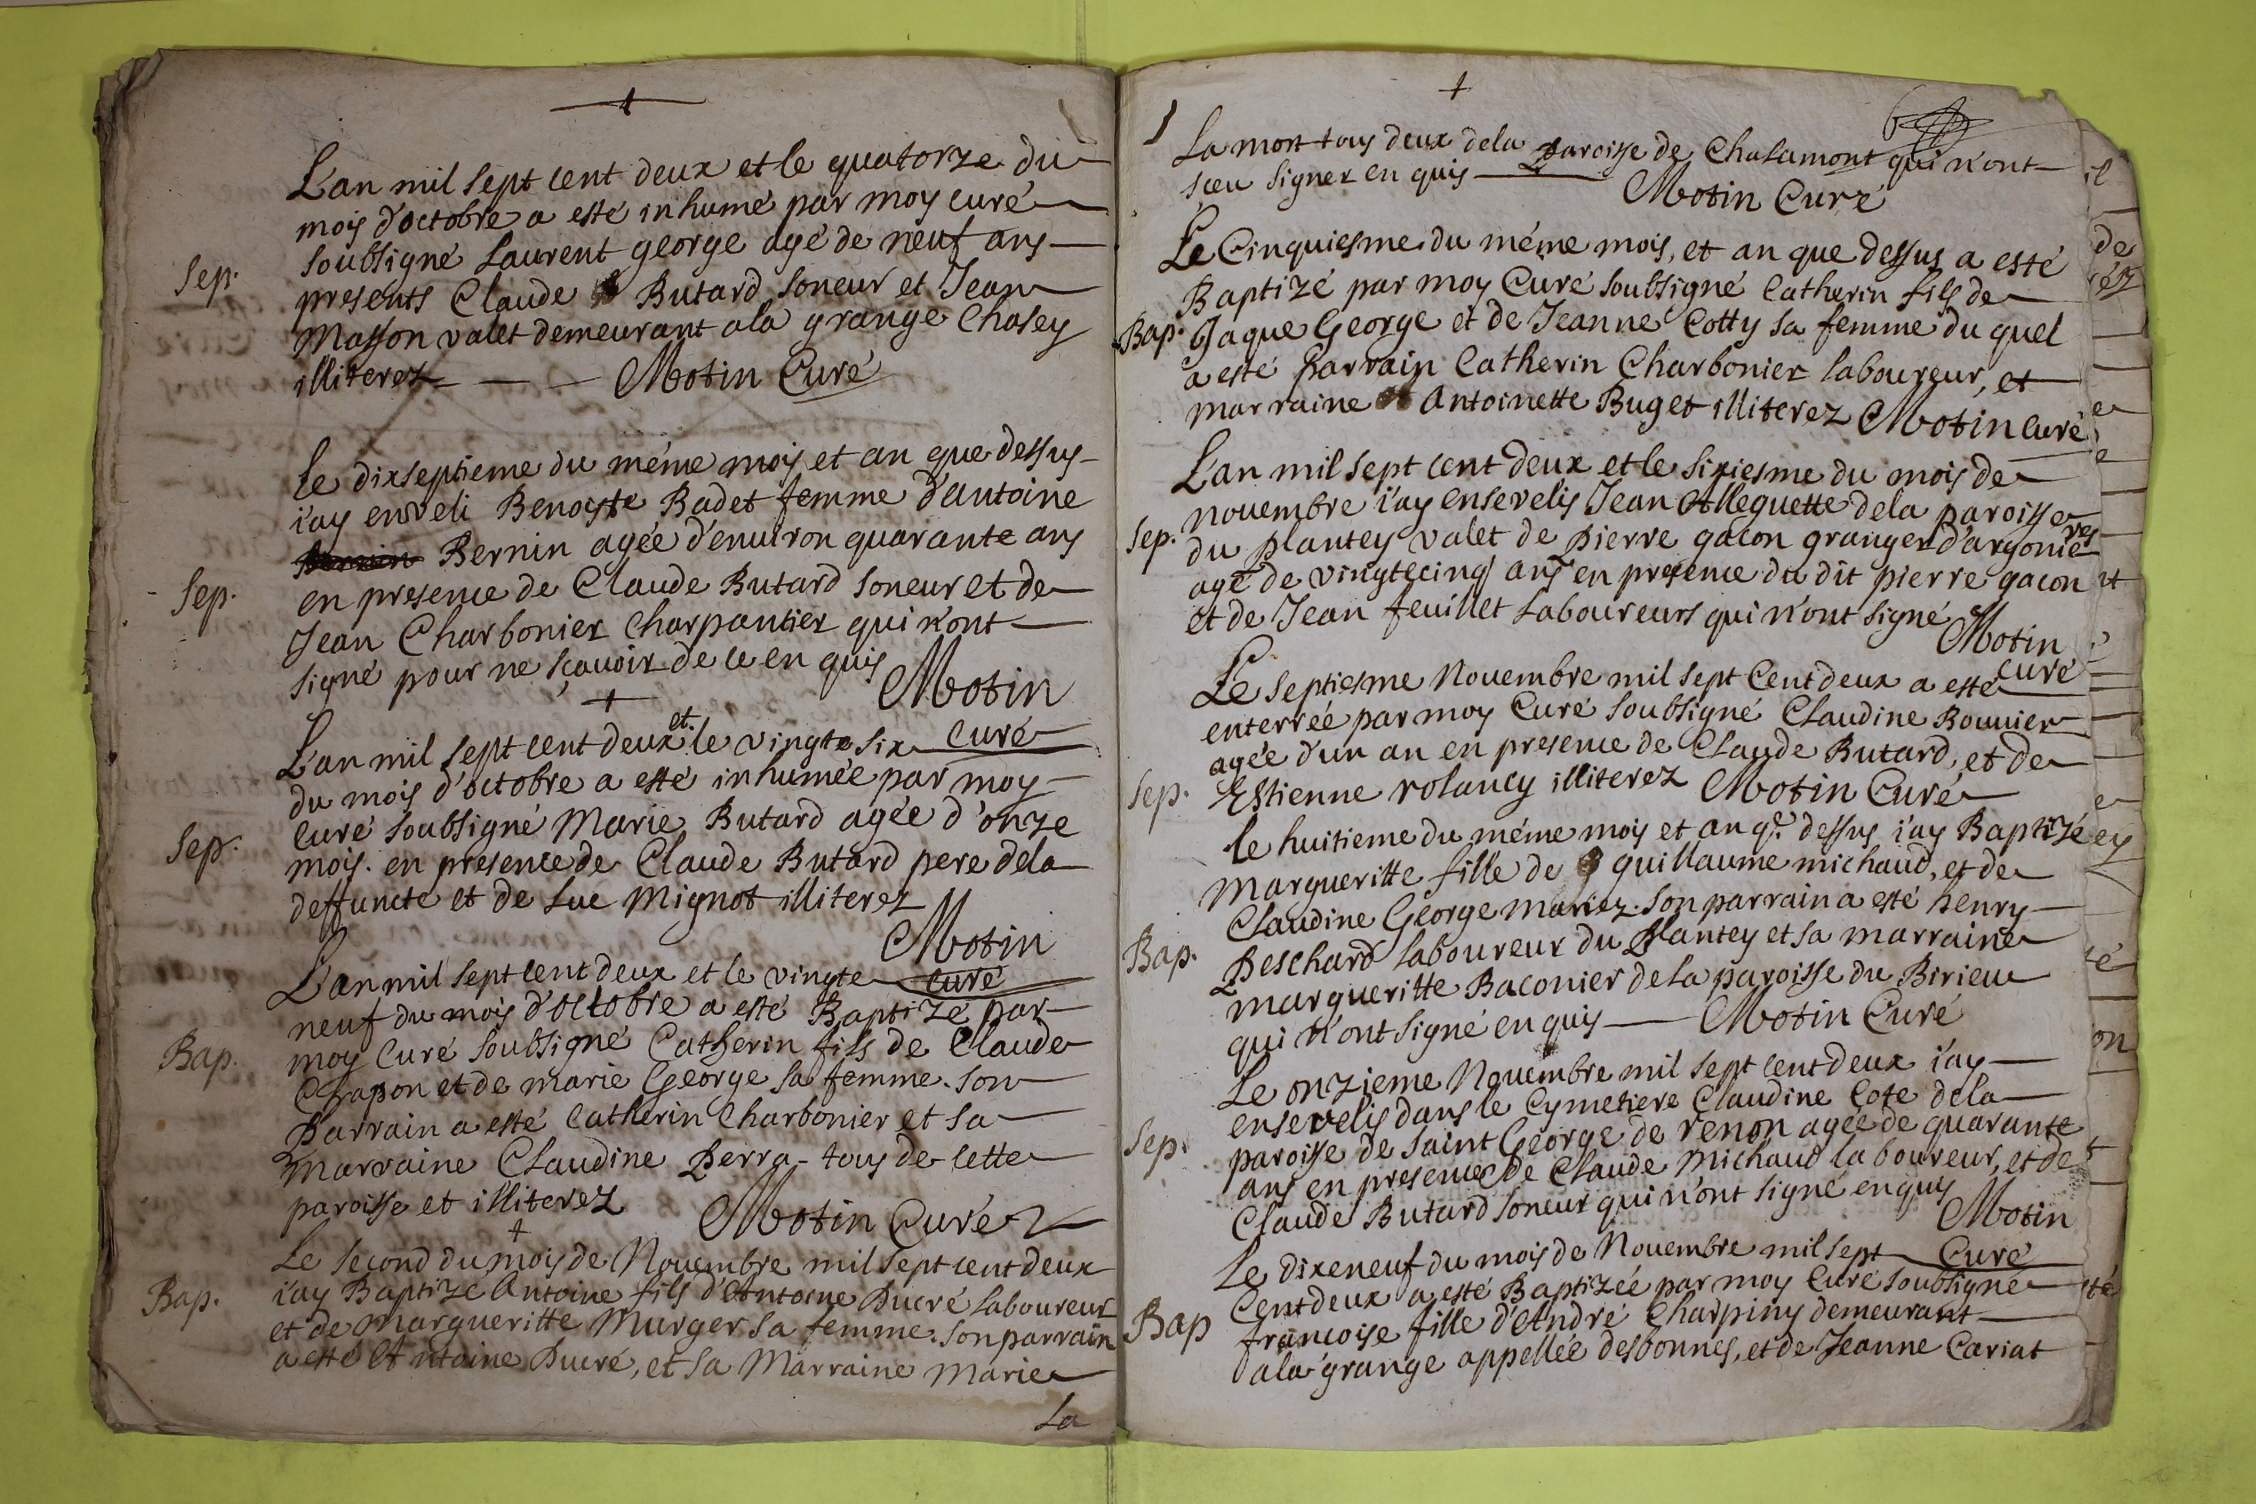 L'an mil sept cent deux et le quatorze du
mois d'octobre a esté inhumé par moy curé
soubsigné Laurent george agé de neuf ans
Sep.
presents Claude Butard soneur et Jean
Masson valet demeurant a la grange Chasey
illiterez Motin Curé
le dixseptieme du méme mois et an que dessus
i'ay enveli Benoiste Badet femme d'antoine
Bernin agée d'enuiron quarante ans
Sep.
en presence de Claude Butard soneur et de
Jean Charbonier Charpantier qui n'ont
signé pour ne sçauoir de ce en quis
Motin
curé
L'an mil sept cent deux et le vingte six
du mois d'octobre a esté inhumée par moy
curé soubsigné Marie Butard agée d'onze
Sep.
mois. en presence de Claude Butard pere dela
deffuncte et de Luc Mignot illiterez
Motin
curé
L'an mil sept cent deux et le vingte
neuf du mois d'octobre a esté Baptizé par
Bap.
moy curé soubsigné Catherin fils de Claude
Chapon et de marie George sa femme. son
Parrain a esté Catherin Charbonier et sa
marraine Claudine Perra - tous de cette
paroisse et illiterez Motin Curé
Le second du mois de Nouembre mil sept cent deux
Bap.
i'ay Baptizé Antoine fils d'Antoine Ducré laboureur
et de Margueritte Murger sa femme. son parrain
a esté Antoine Ducré, et sa Marraine Marie
La
La mort tous deux dela Paroisse de Chalamont qui n'ont
sceu signer en quis Motin Curé
Le Cinquiesme du méme mois, et an que dessus a esté
Baptizé par moy Curé soubsigné Catherin fils de
Bap.
Jaque George et de Jeanne Cotty sa femme du quel
a esté Parrain Catherin Charbonier laboureur, et
marraine Antoinette Buget illiterez Motin curé
L'an mil sept cent deux et le sixiesme du mois de
nouembre i'ay ensevelis Jean Alleguette dela paroisse
Sep.
du plantey valet de pierre gacon granger d'argonieres
agé de vingtecinq ans en presence du dit pierre gacon
et de Jean feuillet Laboureurs qui n'ont signé
Motin
curé
Le septiesme Nouembre mil sept Cent deux a esté
enterrée par moy Curé soubsigné Claudine Bouuier
agée d'un an en presence de Claude Butard, et de
Sep.
Estienne rolancy illiterez Motin Curé
le huitieme du méme mois et an q.e dessus i'ay Baptizé
Margueritte fille de guillaume michaud, et de
Claudine George mariez. son parrain a esté henry
Bap.
Peschard laboureur du Plantey et sa marraine
margueritte Baconier de la paroisse du Birieu
qui n'ont signé en quis Motin Curé
Le onzieme Nouembre mil sept cent deux i'ay
ensevelis dans le Cymetiere Claudine Cote dela
Sep.
paroisse de saint George de renon agée de quarante
ans en presence de Claude Michaud laboureur, et de
Claude Butard soneur qui n'ont signé en quis
Motin
Curé
Le dixeneuf du mois de Nouembre mil sept
Cent deux a esté Baptizée par moy Curé soubsigné
Bap
francoise fille d'André Charpiny demeurant
a la grange appellée desbonnes, et de Jeanne Cariat